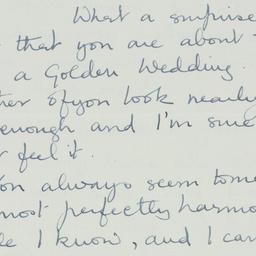 What a surprise
that you are about
a Golden Wedding.
of you look nearly
enough and I'm sure
feel it.
always seem to me
most perfectly
I know, and I can